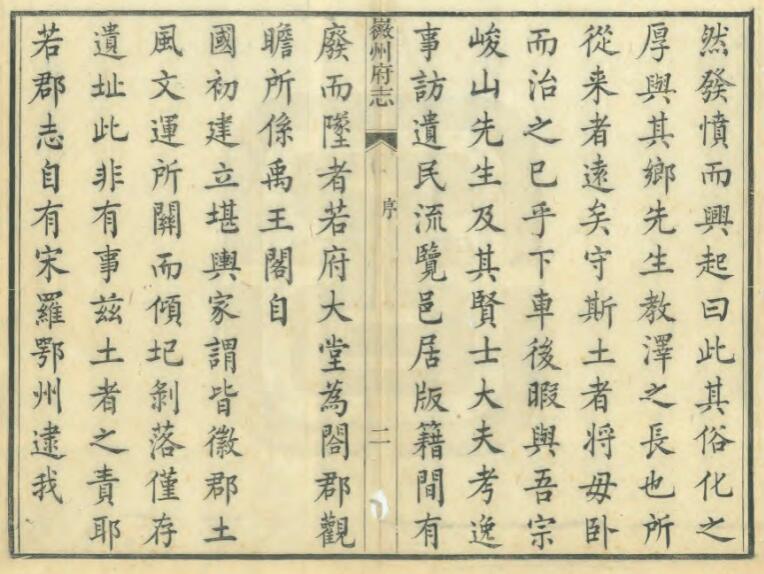 然發憤而興起曰此其俗化之
厚與其鄉先生教澤之長也所
從来者遠矣守斯土者將毋卧
而治之已乎下車後暇與吾宗
峻山先生及其賢士大夫考逸
事訪遺民流覽邑居版籍間有
徽州府志
序
二
廢而墜者若府大堂為閤郡觀
瞻所係禹王閣自
國初建立堪輿家謂皆徽郡土
風文運所關而傾圮剝落僅存
遺址此非有事兹土者之責耶
若郡志自有宋羅鄂州逮我